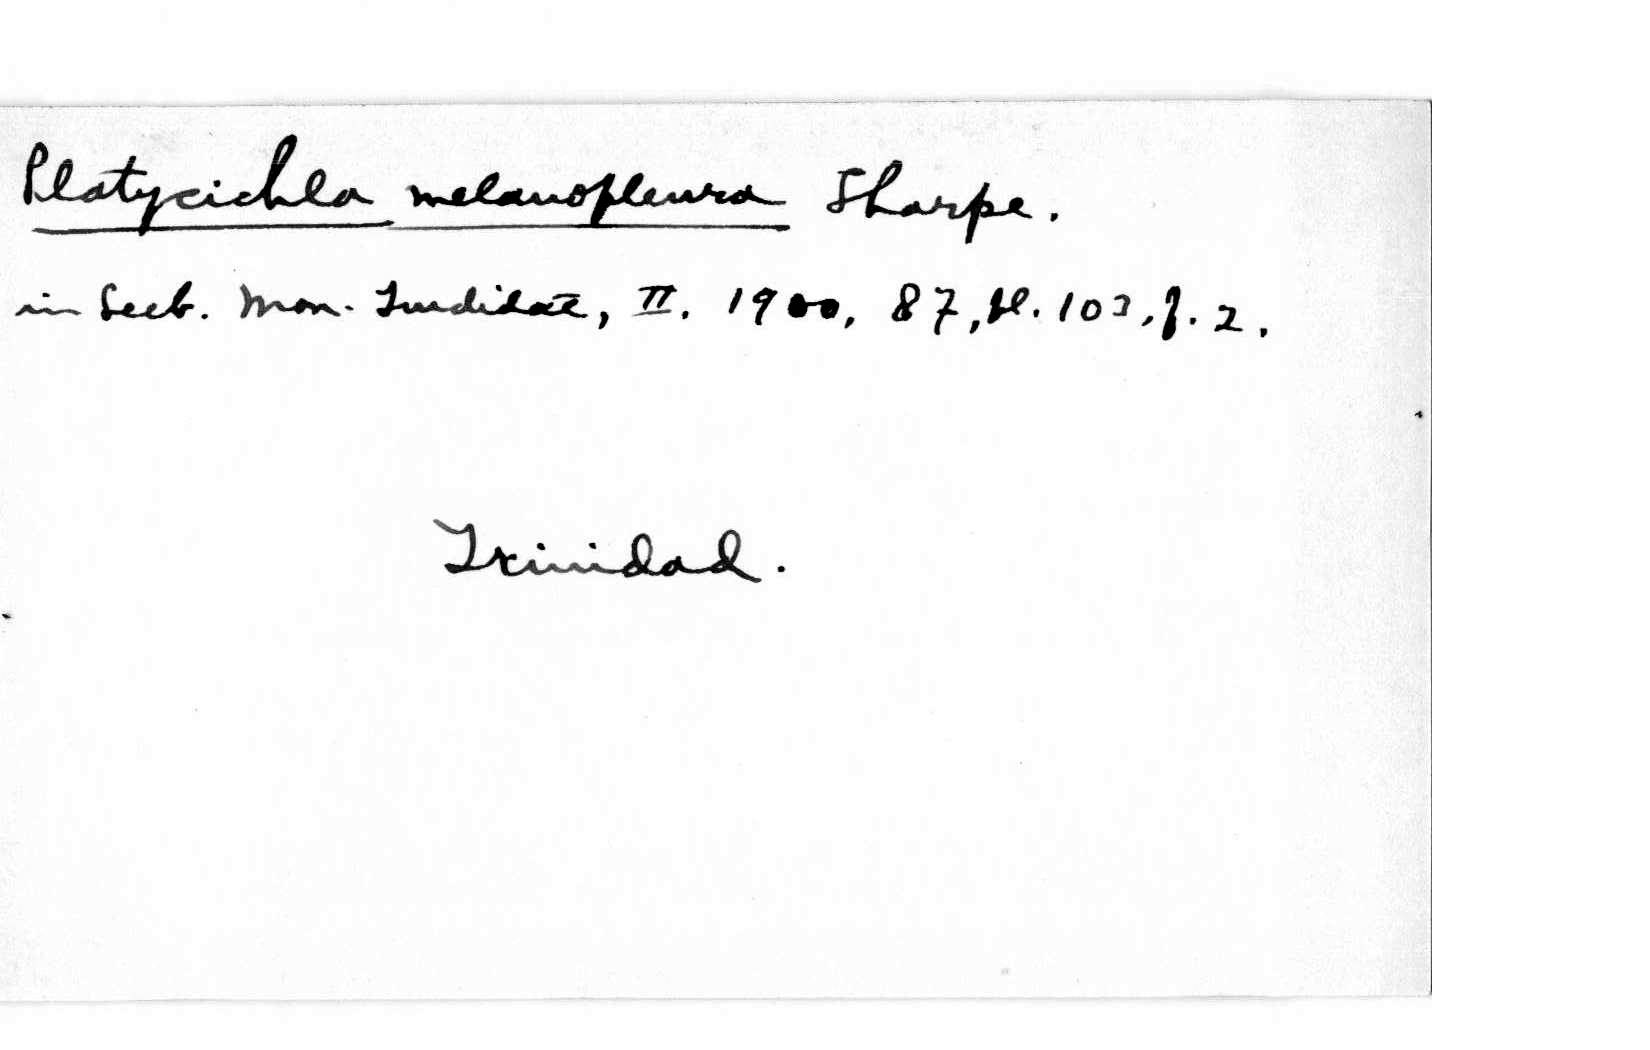 Platycichla melanopleura Sharpe.
in Seeb. Mon. Turdidae, II. 1900, 87, pl. 103, f. 2.
Trinidad.